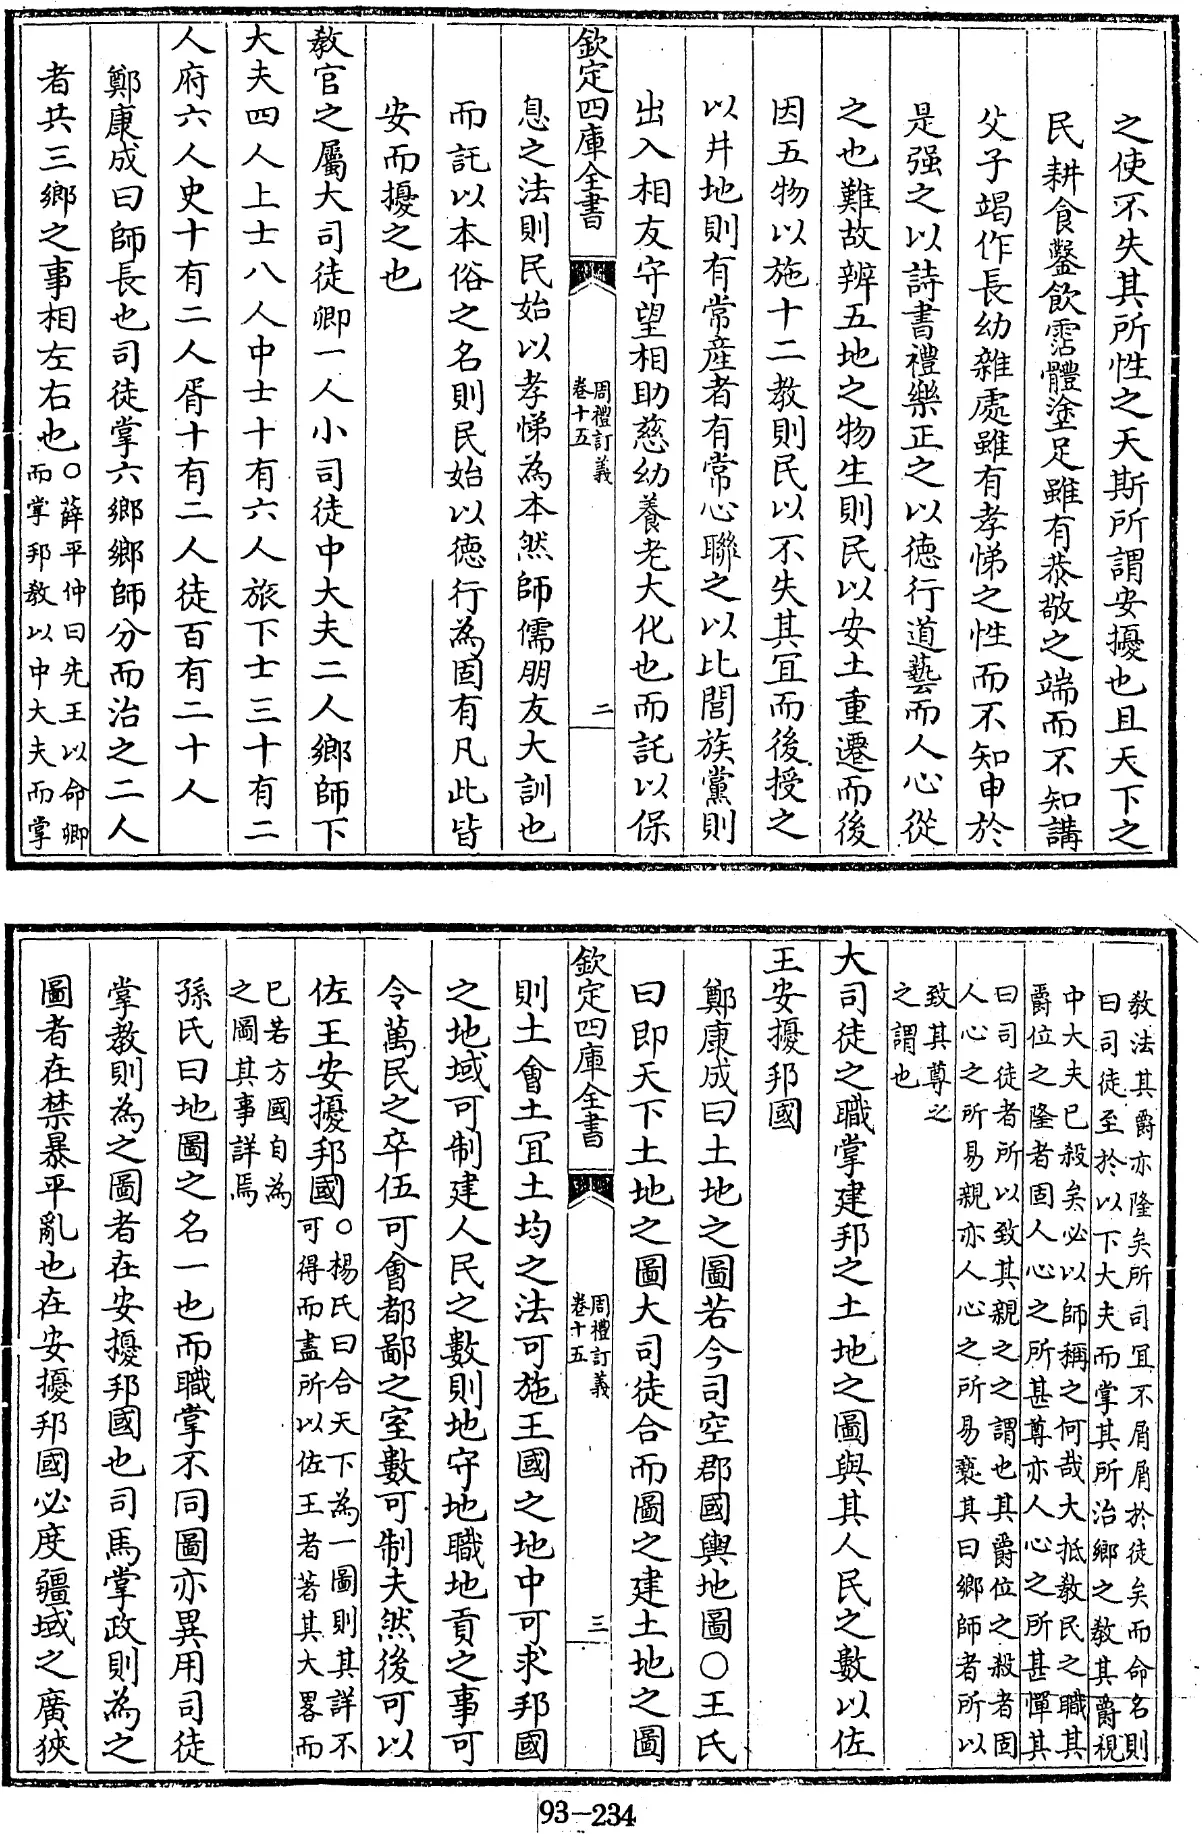 之使不失其所性之天斯所謂安擾也且天下之
民耕食鑿飲霑體塗足雖有恭敬之端而不知講
父子竭作長幼雜處雖有孝悌之性而不知申於
是强之以詩書禮樂正之以德行道藝而人心從
之也難故辨五地之物生則民以安土重遷而後
因五物以施十二教則民以不失其宜而後授之
以井地則有常産者有常心聯之以比閭族黨則
出入相友守望相助慈幼養老大化也而託以保
欽定四庫全書
周禮訂義
卷十五
二
息之法則民始以孝悌為本然師儒朋友大訓也
而託以本俗之名則民始以德行為固有凡此皆
安而擾之也
教官之屬大司徒卿一人小司徒中大夫二人鄉師下
大夫四人上士八人中士十有六人旅下士三十有二
人府六人史十有二人胥十有二人徒百有二十人
鄭康成曰師長也司徒掌六鄉鄉師分而治之二人
者共三鄉之事相左右也○薛平仲曰先王以命卿
而掌邦教以中大夫而掌
教法其爵亦隆矣所司宜不屑屑於徒矣而命名則
曰司徒至於以下大夫而掌其所治鄉之教其爵視
中大夫已殺矣必以師稱之何哉大抵教民之職其
爵位之隆者固人心之所甚尊亦人心之所甚憚其
曰司徒者所以致其親之之謂也其爵位之殺者固
人心之所易親亦人心之所易褻其曰鄉師者所以
致其尊之
之謂也
大司徒之職掌建邦之土地之圖與其人民之數以佐
王安擾邦國
鄭康成曰土地之圖若今司空郡國輿地圖○王氏
曰即天下土地之圖大司徒合而圖之建土地之圖
欽定四庫全書
周禮訂義
卷十五
三
則土會土宜土均之法可施王國之地中可求邦國
之地域可制建人民之數則地守地職地貢之事可
令萬民之卒伍可會都鄙之室數可制夫然後可以
佐王安擾邦國○楊氏曰合天下為一圖則其詳不
可得而盡所以佐王者著其大畧而
已若方國自為
之圖其事詳焉
孫氏曰地圖之名一也而職掌不同圖亦異用司徒
掌教則為之圖者在安擾邦國也司馬掌政則為之
圖者在禁暴平亂也在安擾邦國必度疆域之廣狹
93-234